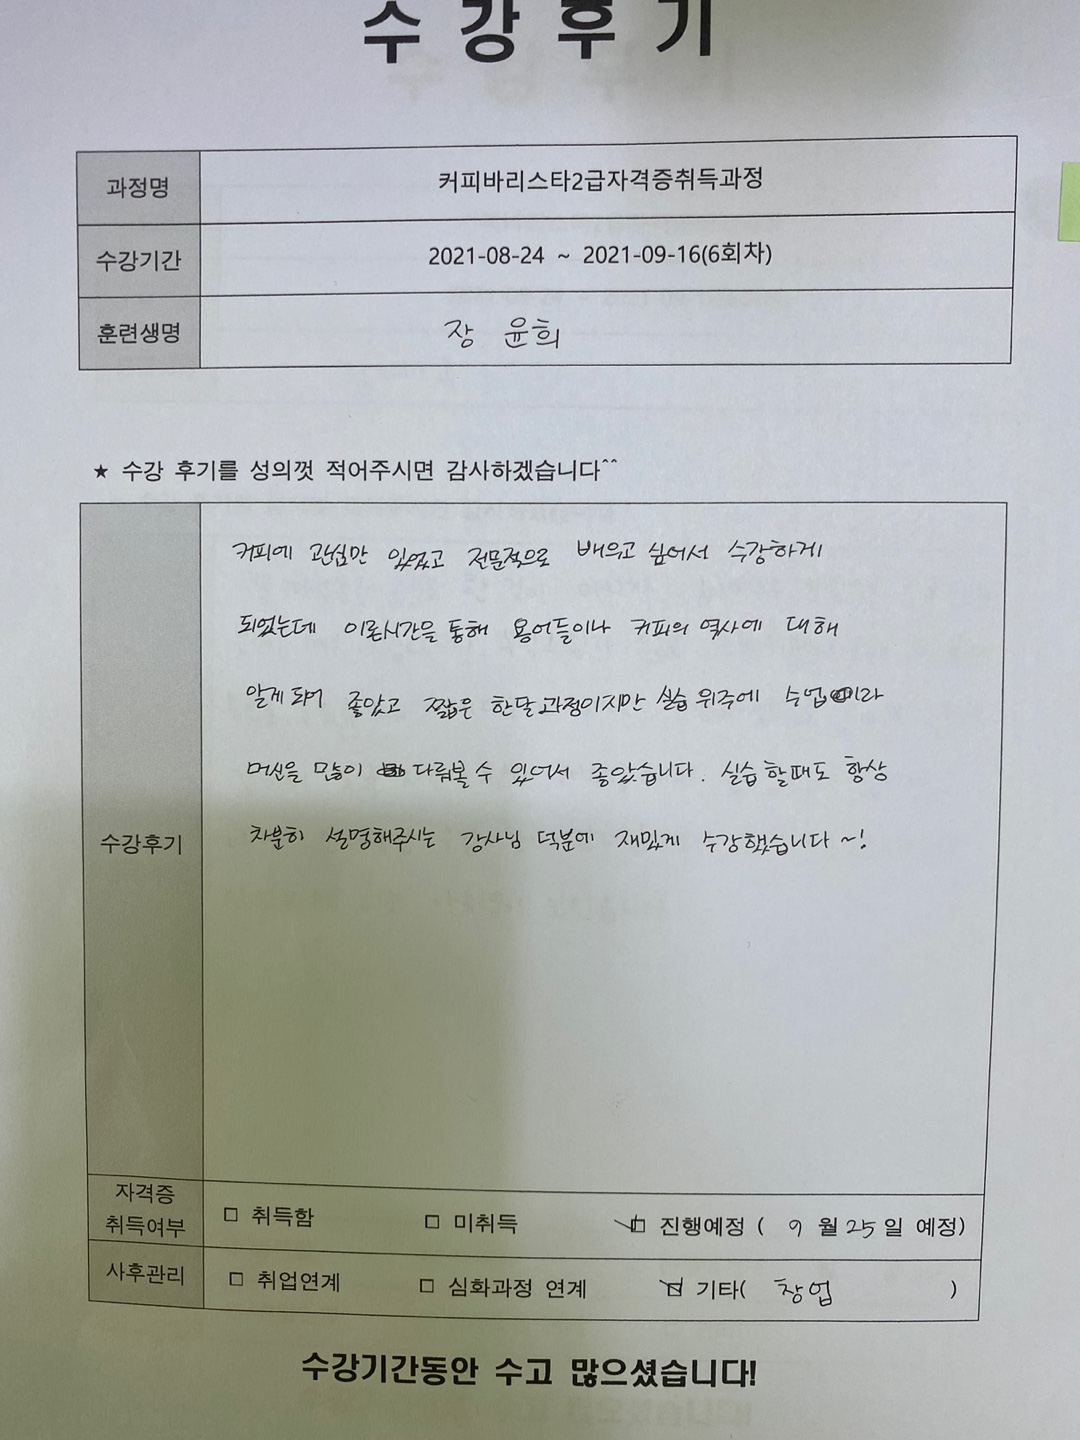 수강후기
과정명 커피바리스타2급자격증취득과정
수강기간 2021-08-24 ~ 2021-09-16(6회차)
훈련생명 장 윤희
★ 수강 후기를 성의껏 적어주시면 감사하겠습니다^^
커피에 관심만 있었고 전문적으로 배우고 싶어서 수강하게
되었는데 이론시간을 통해 용어들이나 커피의 역사에 대해
알게되어 좋았고 짧은 한달과정이지만 실습 위주에 수업이라
머신을 많이 다뤄볼 수 있어서 좋았습니다. 실습할때도 항상
수강후기 차분히 설명해주시는 강사님 덕분에 재밌게 수강했습니다~!
자격증
취득여부 □ 취득함 □ 미취득 ☑ 진행예정 ( 9 월 25 일 예정)
사후관리 □ 취업연계 □ 심화과정 연계 ☑ 기타( 창업 )
수강기간동안 수고 많으셨습니다!